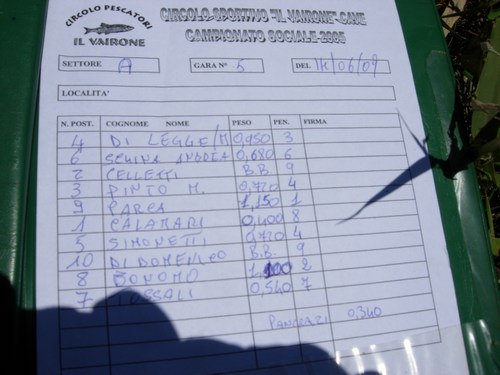 CIRCOLO PESCATORI
IL VAIRONE
CIRCOLO SPORTIVO "IL VAIRONE" CAVE
CAMPIONATO SOCIALE 2005
SETTORE A GARA N° 5 DEL 14/06/09
LOCALITA'
N. POST. COGNOME NOME PESO PEN. FIRMA
4 DI LEGGE M 0,950 3
6 SCHINA ANDREA 0,680 6
2 CELLETTI B.B 9
3 PINTO M. 0,720 4
9 PARCA 1,150 1
1 CALAMARI 0,400 8
5 SIMONETTI 0,720 4
10 DI DOMENICO B.B 9
8 BONOMO 2
7 0,540 7
0,340